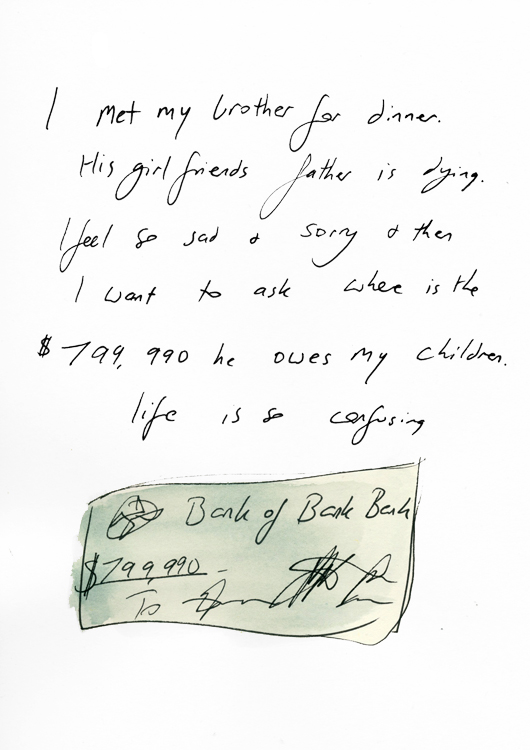 I met my brother for dinner.
His girlfriends father is dying.
I feel so sad & sorry & then
I want to ask where is the
$799,990 he owes my children.
life is so confusing
Bank of Bank Bank
$799,990 -
To